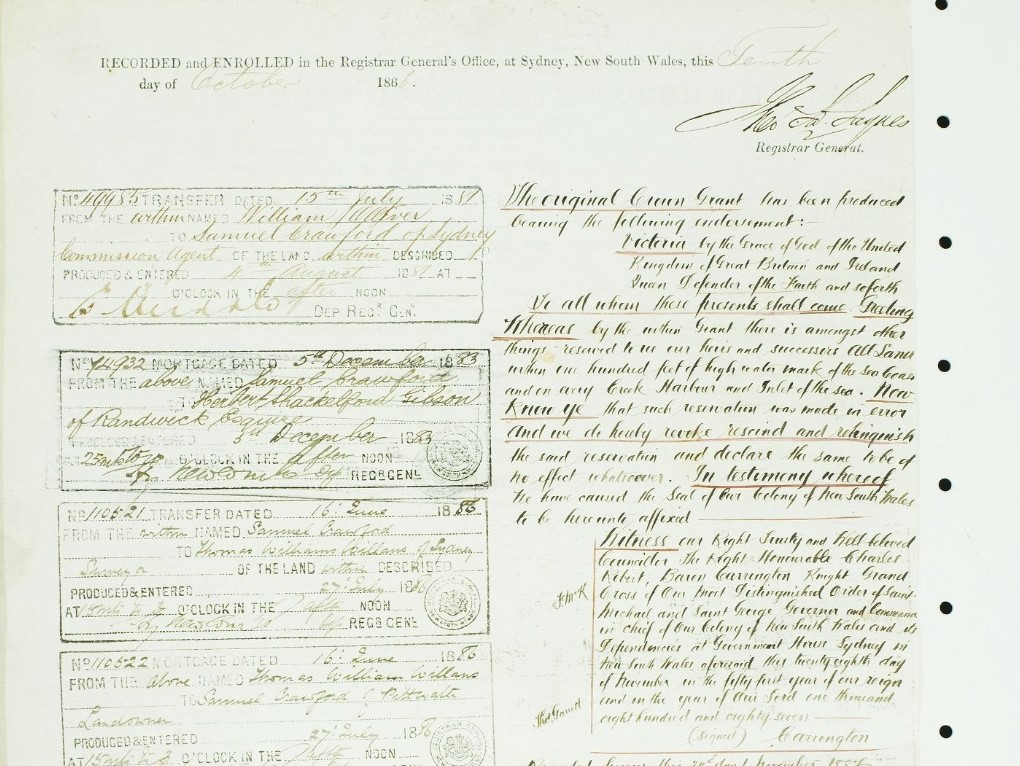 RECORDED and ENROLLED in the Registrar General's Office, at Sydney, New South Wales, this Tenth
day of October 186
Registrar General.
No 49985 TRANSFER DATED 15th July 1881
FROM THE within NAMED William
TO Samuel Crawford of Sydney
Commission Agent OF THE LAND within DESCRIBED
PRODUCED & ENTERED 4th August 1881 AT
O'CLOCK IN THE after NOON
DEP REGR GENL
No 74932 MORTGAGE DATED 5th December 1883
FROM THE above NAMED Samuel Crawford
TO Herbert Shackelford Gibson
of Randwick Esquire
PRODUCED & ENTERED 5th December 1883
O'CLOCK IN THE after NOON
REGR GENL
No 110521 TRANSFER DATED 16th June 1886
FROM THE within NAMED Samuel Crawford
TO Thomas William Willans of Sydney
Surveyor OF THE LAND within DESCRIBED
PRODUCED & ENTERED 27th July 1886
AT O'CLOCK IN THE after NOON
REGR GENL
No 110522 MORTGAGE DATED 16th June 1886
FROM THE above NAMED Thomas William Willans
TO Samuel Crawford of Pittwater
Landowner
PRODUCED & ENTERED 27th July 1886
O'CLOCK IN THE after NOON
The original Crown Grant has been produced
bearing the following endorsement:—
Victoria by the Grace of God of the United
Kingdom of Great Britain and Ireland
Queen Defender of the Faith and so forth
To all whom these presents shall come Greeting
Whereas by the within Grant there is amongst other
things reserved to us our heirs and successors All Land
within one hundred feet of high water mark of the Sea Coast
and on every Creek Harbour and Inlet of the sea. Now
Know ye that such reservation was made in error
And we do hereby revoke rescind and relinquish
the said reservation and declare the same to be of
no effect whatsoever. In testimony whereof
We have caused the Seal of Our Colony of New South Wales
to be hereunto affixed
Witness our Right Trusty and Well beloved
Councillor The Right Honourable Charles
Robert, Baron Carrington Knight Grand
Cross of Our Most Distinguished Order of Saint
Michael and Saint George Governor and Commander
in Chief of Our Colony of New South Wales and its
Dependencies at Government House Sydney in
New South Wales aforesaid this twenty eighth day
of November in the fifty first year of our reign
and in the year of Our Lord one thousand
eight hundred and eighty seven
Thos Garrett
(signed) Carrington